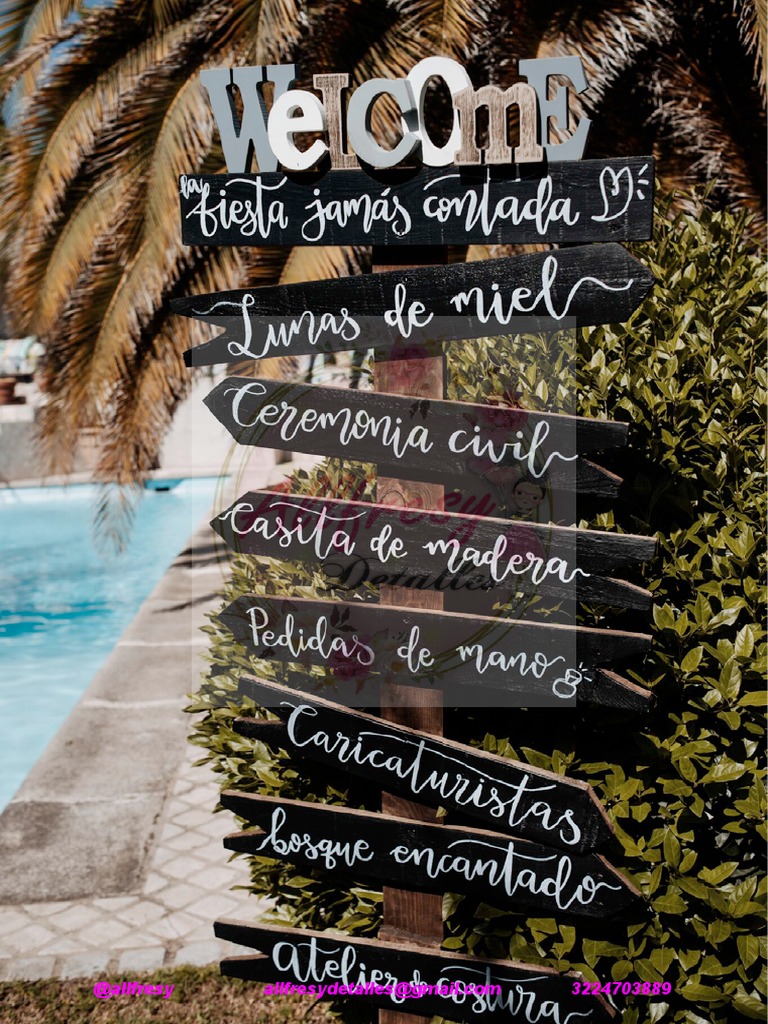 WeLCOmE
la fiesta jamás contada
Lunas de miel
Ceremonia civil
Casita de madera
Allfresy
Detalles
Pedidas de mano
Caricaturistas
bosque encantado
atelier costura
@allfresy allfresydetalles@gmail.com 3224703889